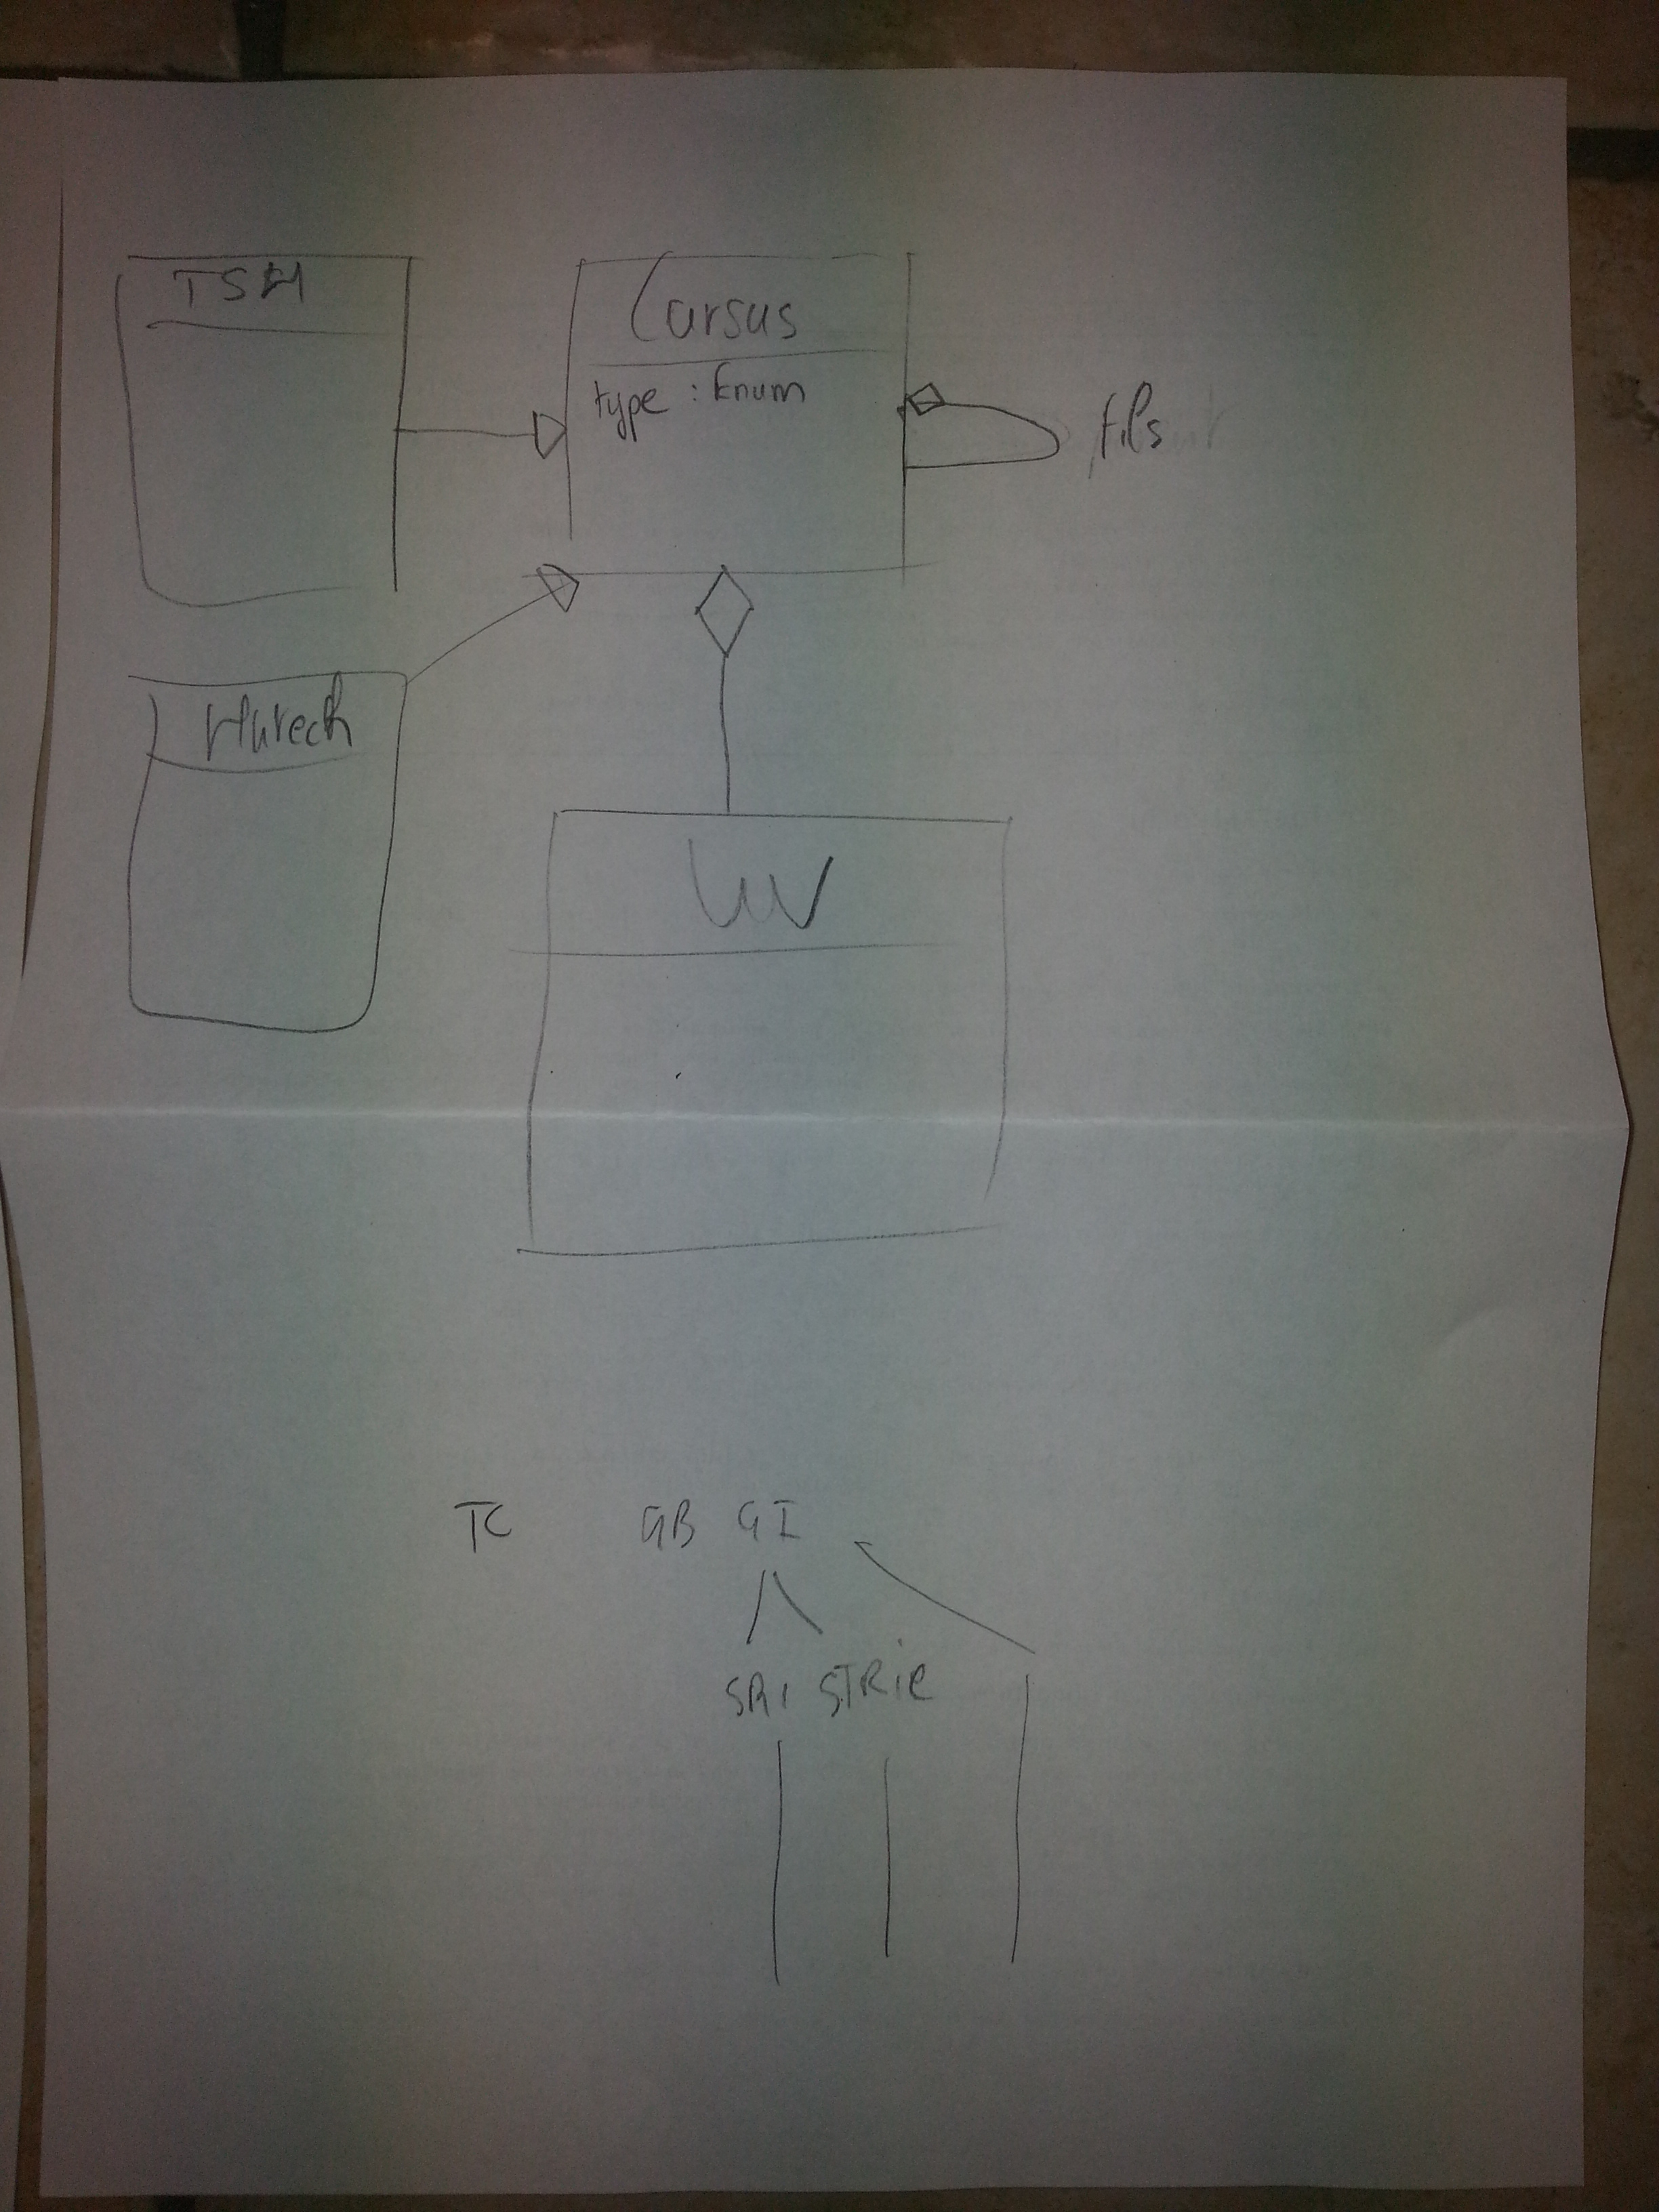 TSH
Cursus
type : Enum
fils
Hutech
UV
TC GB GI
SRI STRIE